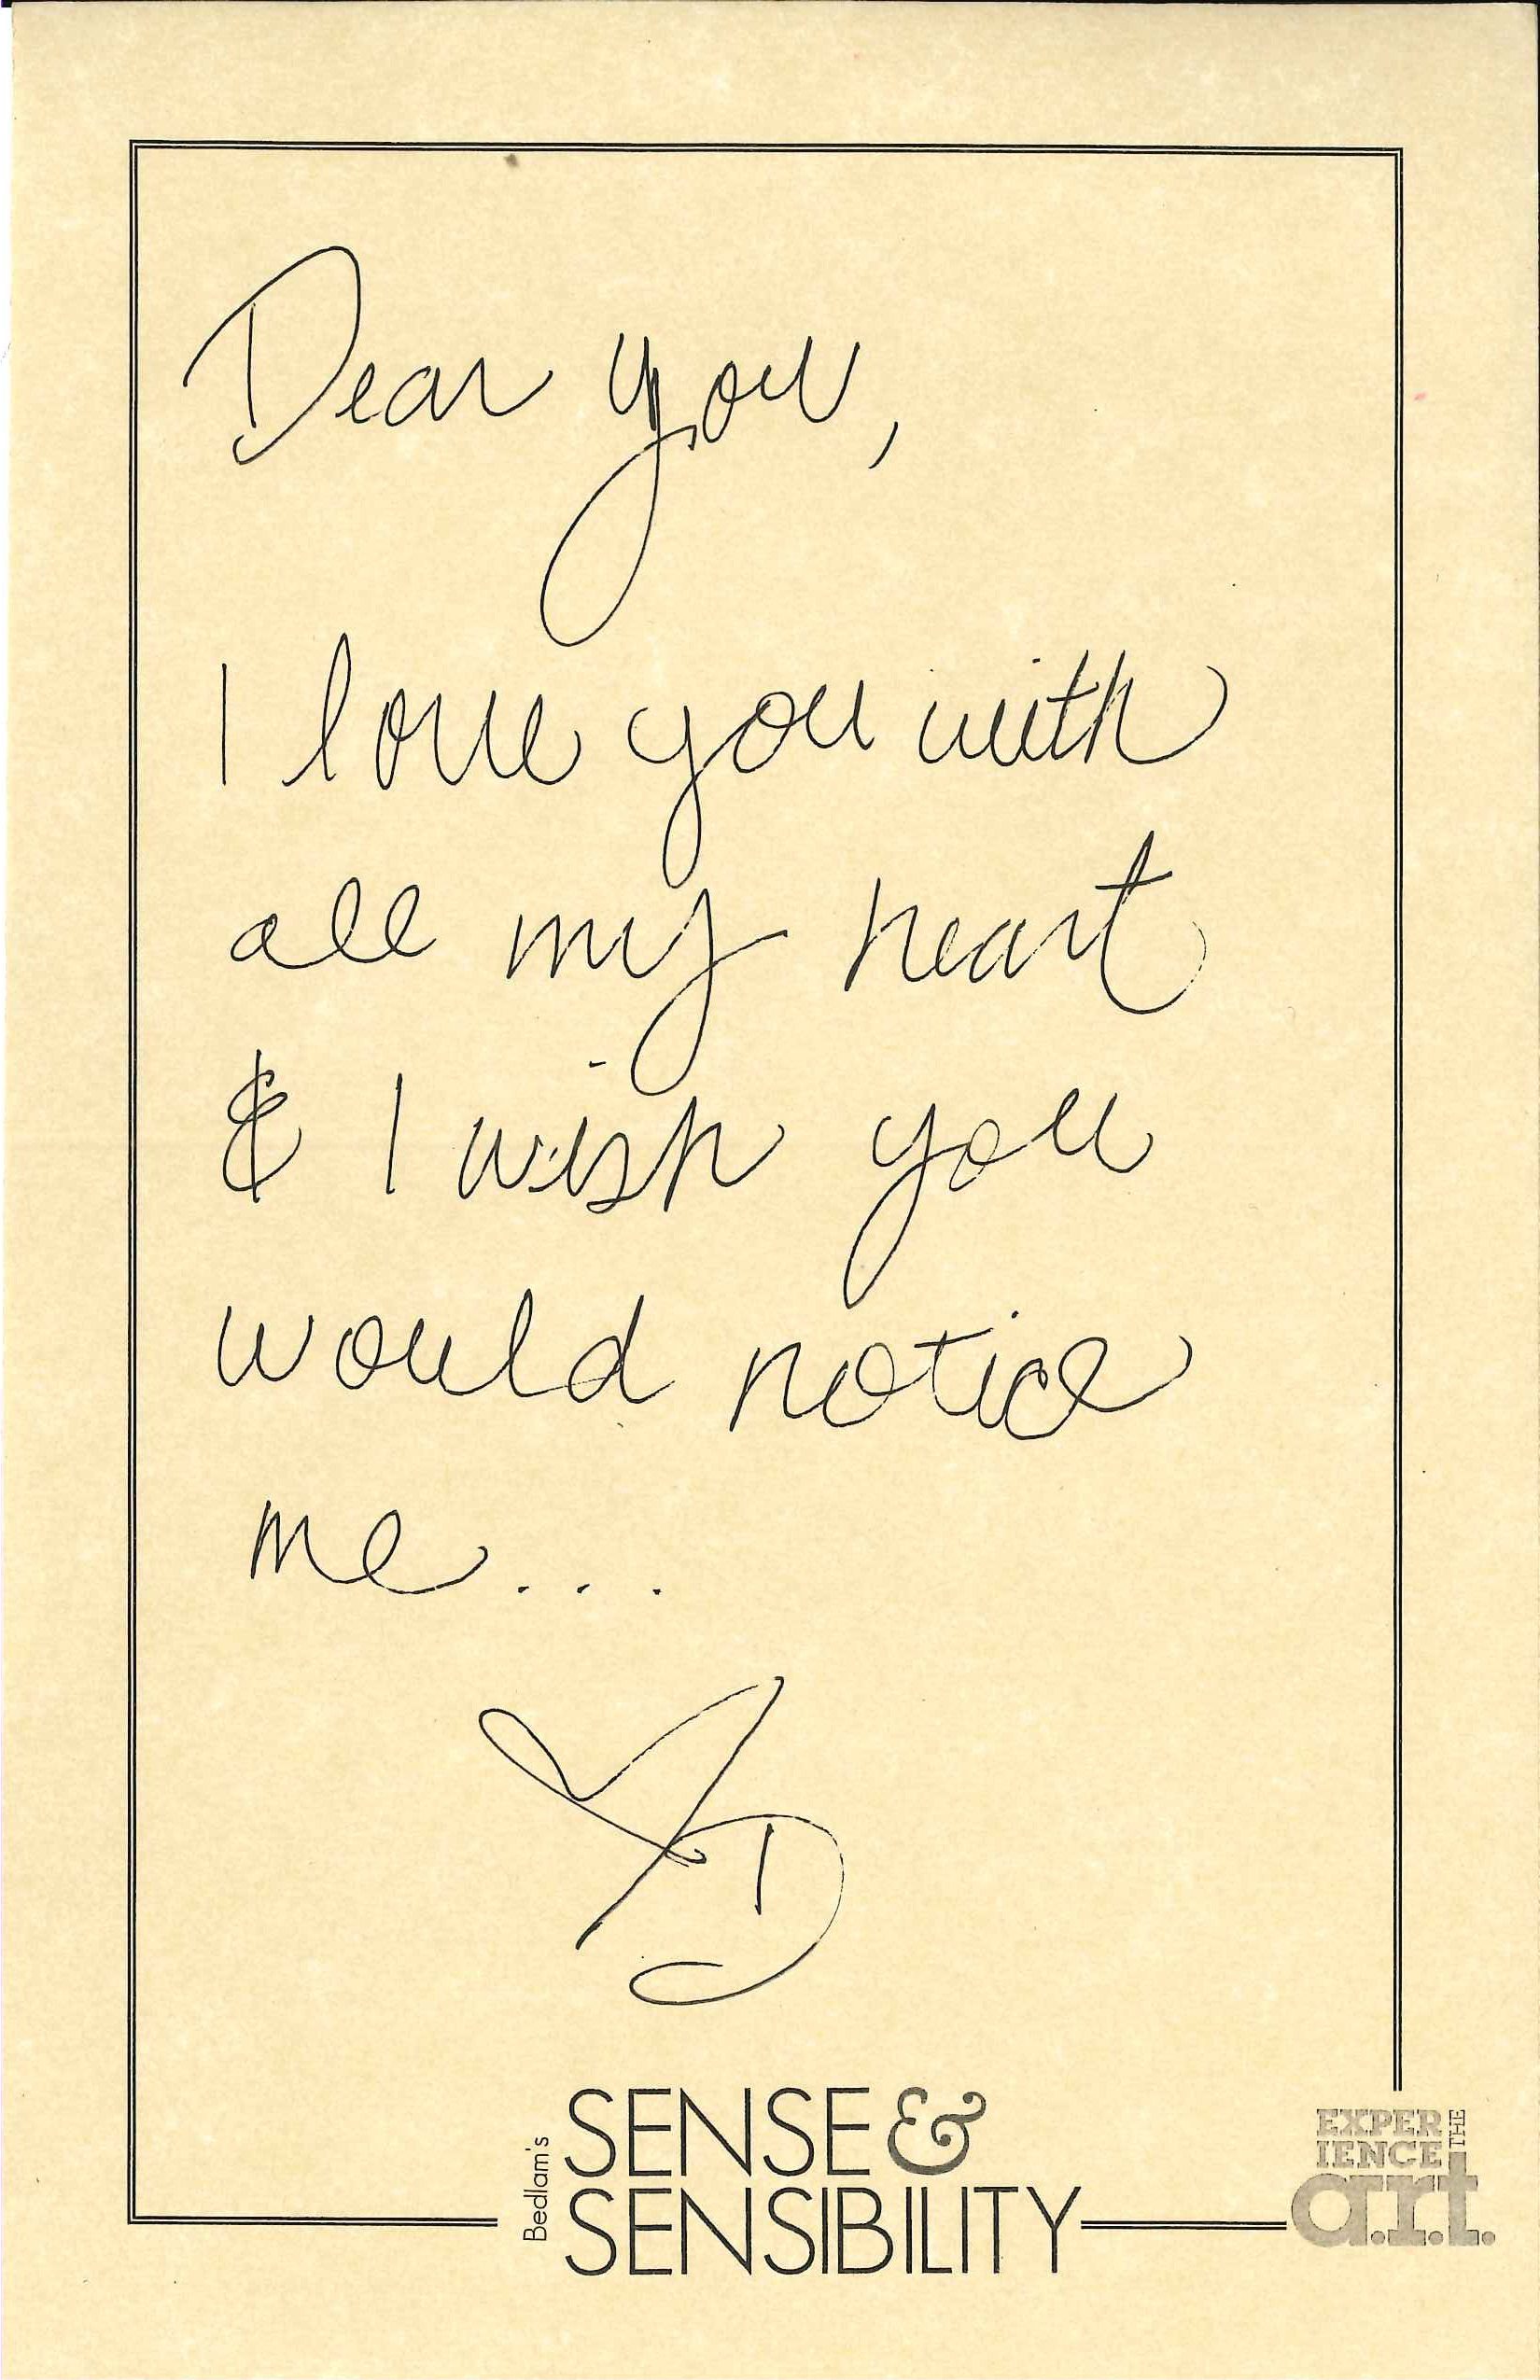 Dear you,
I love you with
all my heart
& I wish you
would notice
me...
D
Bedlam's
SENSE &
SENSIBILITY
EXPER
IENCE THE
a.r.t.